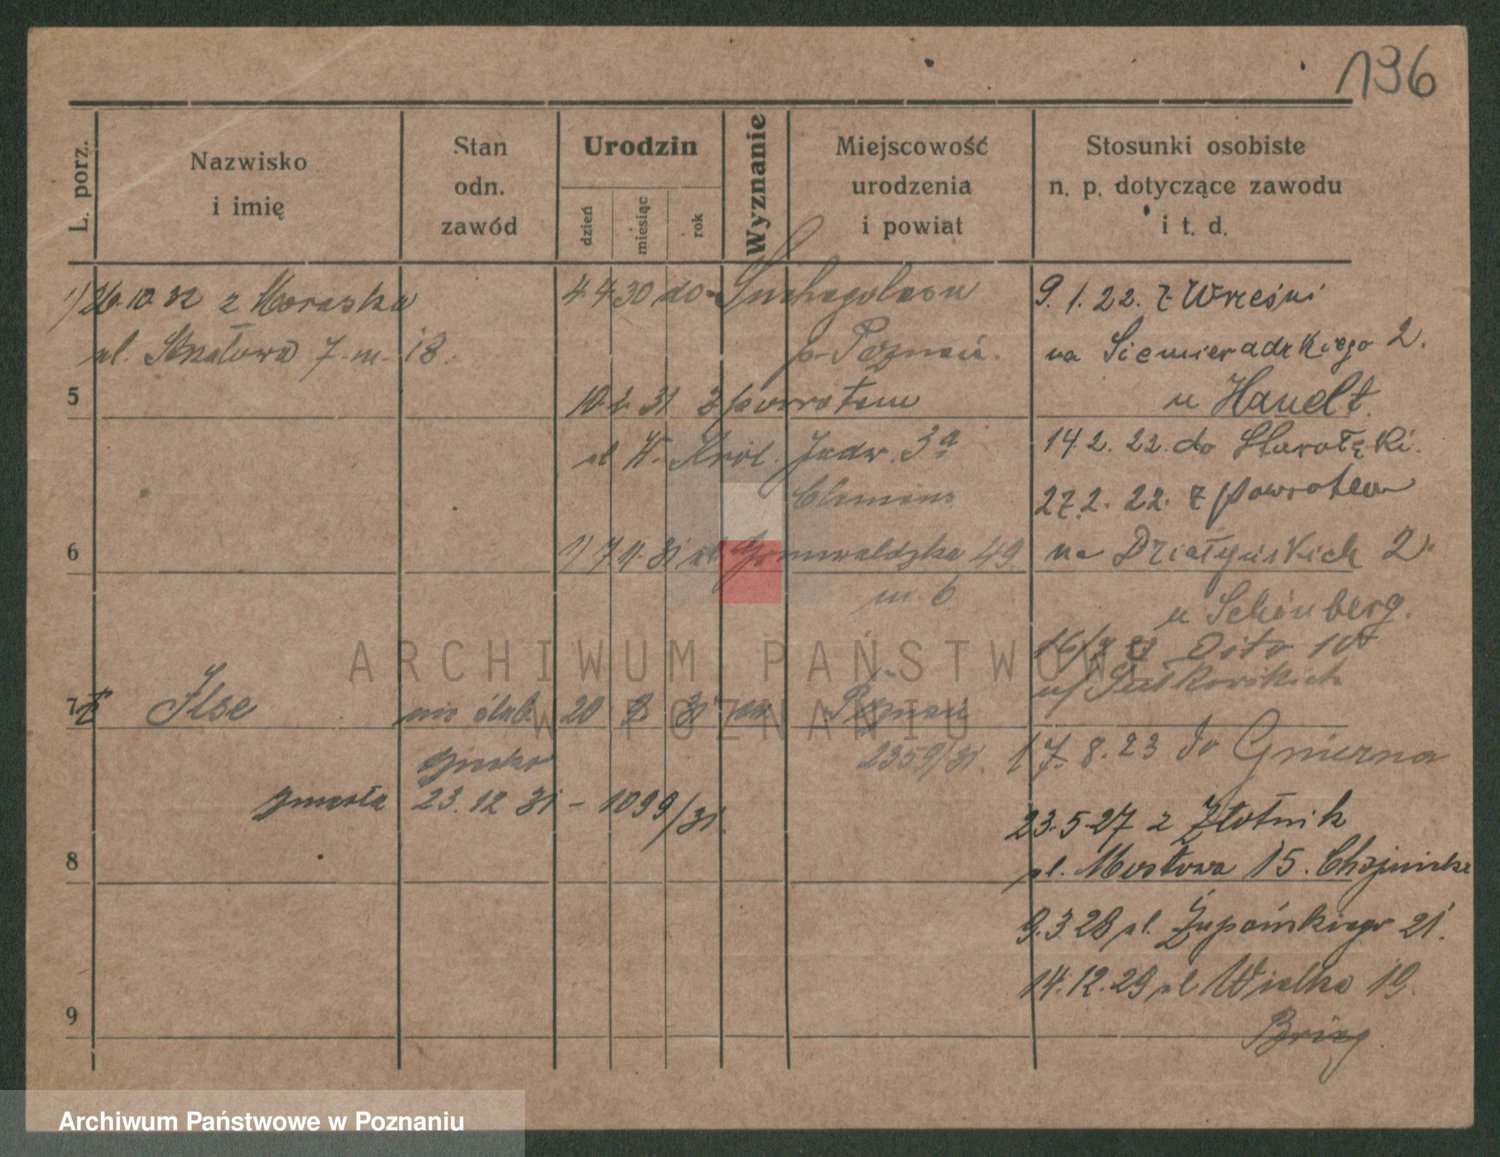 136
L. porz.
Nazwisko
i imię
Stan
odn.
zawód
Urodzin
dzień
miesiąc
rok
Wyznanie
Miejscowość
urodzenia
i powiat
Stosunki osobiste
n. p. dotyczące zawodu
i t. d.
1) 26.10.32 z Moraska
ul. 7. m. 18.
5
4 4 30 do Suchegolasu
p. Poznań.
10.2.31 z powrotem
ul W. Król. Jadw. 3a
Clemens
6
1) 7 11. 31 ul Grunwaldzka 49
m. 6
7
Ilse
nieślub.
20
31
Poznań
2359/31.
zmarła 23.12 31 - 1099/31.
8
9
9.1.22. z Wrześni
na Siemieradzkiego 2.
u Handt.
14.2.22. do Starołęki.
27.2.22. z powrotem
na Działyńskich 2.
u Schönberg.
Dito 10
Sułkowskich
17.8.23 do Gniezna
23.5.27 z Złotnik
ul. Mostowa 15.
9.3.28 ul. Żupańskiego 21.
14.12.29 ul Wielka 19.
ARCHIWUM PAŃSTWOWE
W POZNANIU
Archiwum Państwowe w Poznaniu